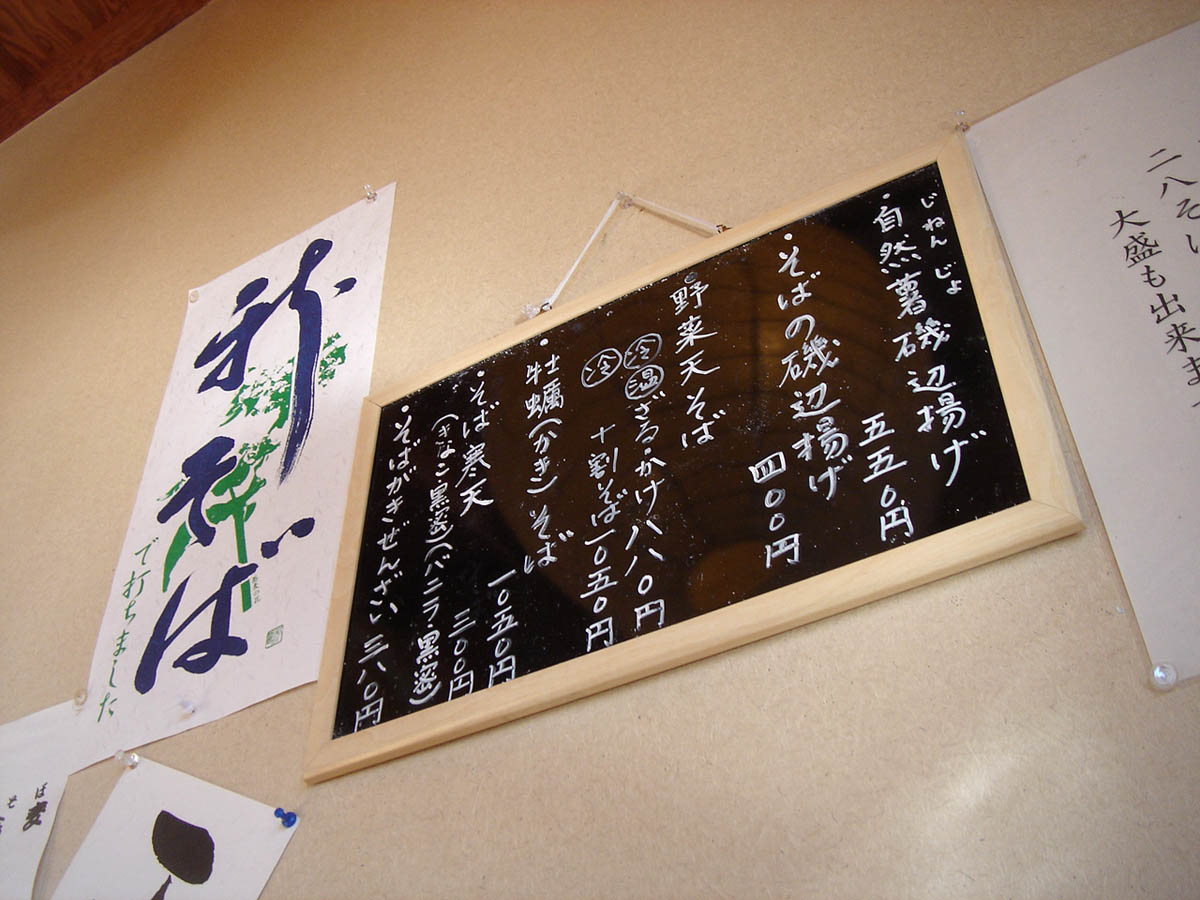 二八そば
大盛も出来ます
じねんじょ
・自然薯磯辺揚げ
五五〇円
・そばの磯辺揚げ
四〇〇円
・野菜天そば
冷温ざる・かけ八八〇円
冷十割そば一〇五〇円
・牡蠣(かき)そば
一〇五〇円
・そば寒天
三〇〇円
(きなこ黒密)(バニラ黒密)
・そばがきぜんざい三八〇円
新そば
で打ちました